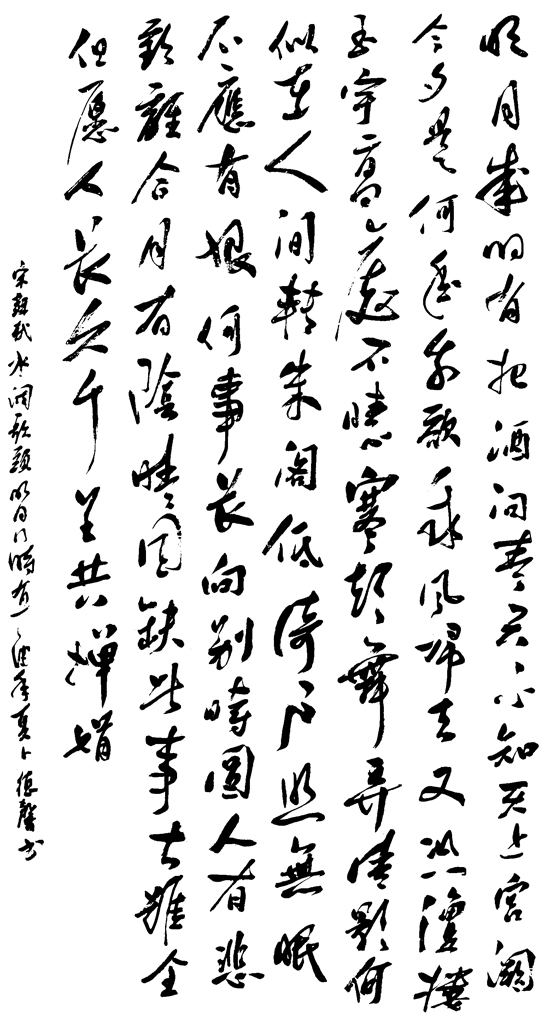 明月幾时有把酒问青天不知天上宫阙
今夕是何年我欲乘风归去又恐瓊樓
玉宇高處不勝寒起舞弄清影何
似在人间轉朱阁低绮户照無眠
不應有恨何事长向别時圆人有悲
歡離合月有陰晴圆缺此事古難全
但愿人长久千里共嬋娟
宋蘇軾水调歌頭明月几時有一年夏卜德馨书